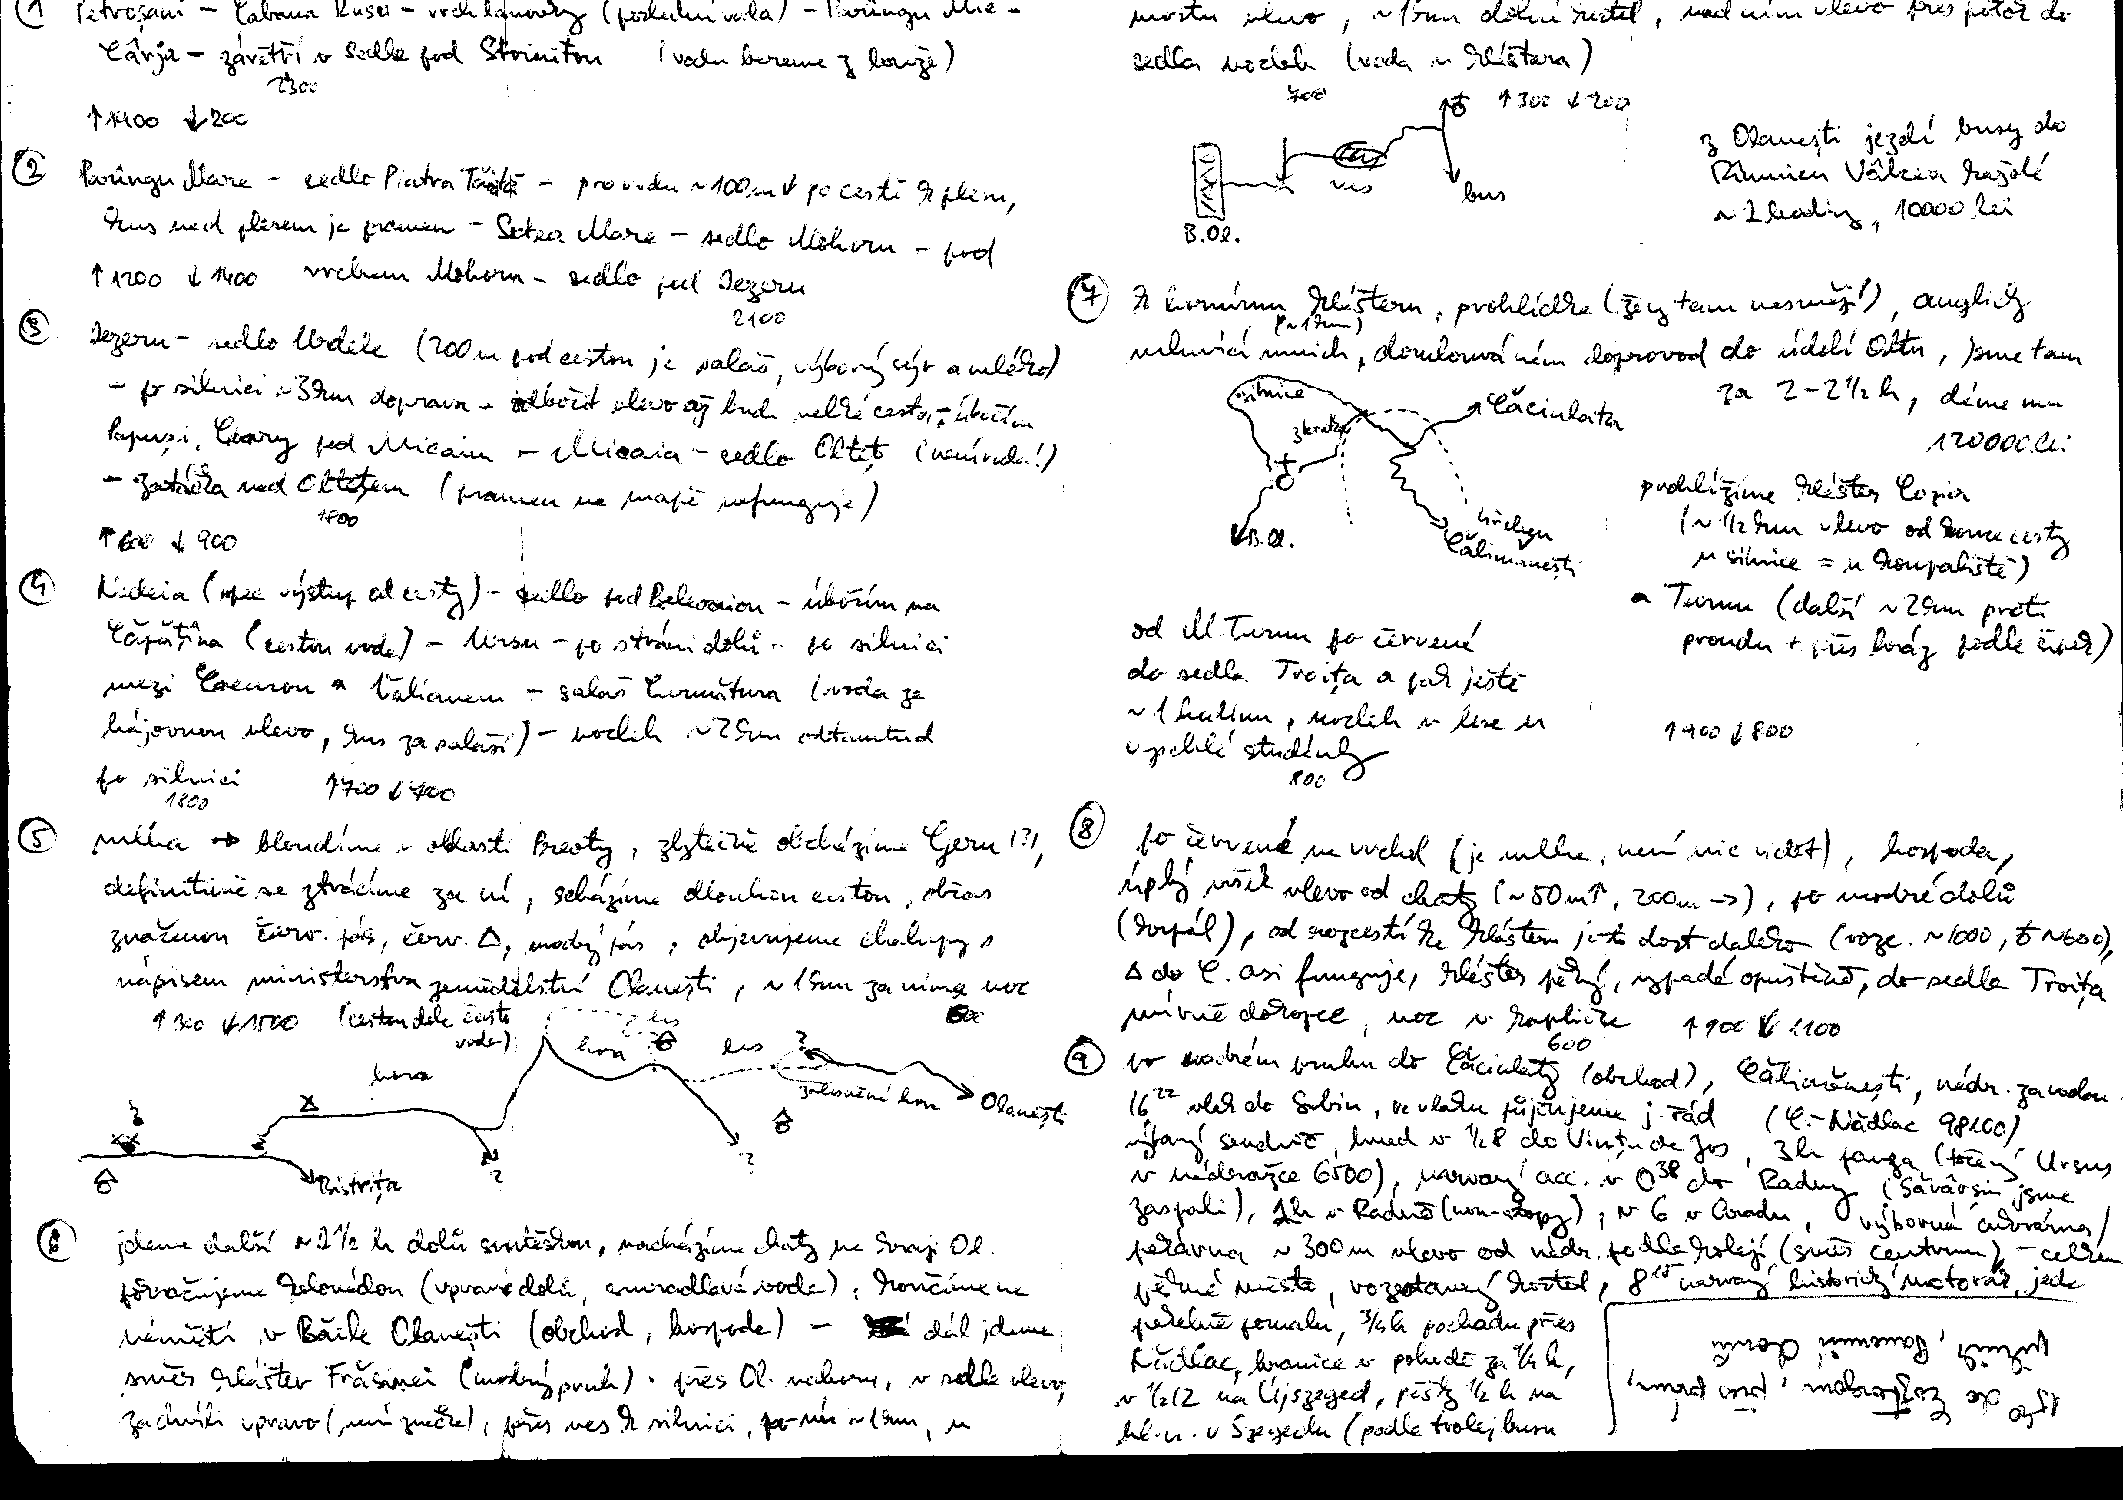 ① Petroșani – Cabana Rusu – vrchol lanovky (poslední voda) – Parîngu Mic –
Cârja – závětří v sedle pod Stoinițou (vodu bereme z louže)
2300
↑1400 ↓200
② Parîngu Mare – sedlo Piatra Tăiată – pro vodu ~100m↓ po cestě k plesu,
kus nad plesem je pramen – Setea Mare – sedlo Mohoru – pod
↑1200 ↓1400 vrcholem Mohoru – sedlo pod Iezeru
2100
③ Iezeru – sedlo Urdele (200m pod cestou je salaš, výborný sýr a mléko)
– po silnici ~3km doprava – odbočit vlevo až bude velká cesta – úbočím
Papuși, Cioary pod Micaiu – Micaia – sedlo Olteț (není voda!)
– zatáčka nad Oltețem (pramen na mapě nefunguje)
1800
↑600 ↓900
④ Nedeia (výstup od cesty) – sedlo pod – úbočím na
Căpățîna (cestou voda) – Ursu – po stráni dolů – po silnici
mezi a – salaš Curmătura (voda za
hájovnou vlevo, kus za salaší) – nocleh ~2km odtamtud
po silnici ↑700 ↓700
1800
⑤ mlha → bloudíme v oblasti , zbytečně obcházíme Geru (?),
definitivně se ztrácíme za ní, scházíme dlouhou cestou, občas
značenou červ. pás, červ. Δ, modrý pás, objevujeme chalupy s
nápisem ministerstva zemědělství Olanești, ~1km za nimi noc
↑300 ↓1500 (cestou dole často voda) 600
les
hora les
hora ?
zalesněná hora Olanești
?
Bistrița ? ?
⑥ jdeme další ~2½ h dolů soutěskou, nacházíme chaty na kraji Ol.
pokračujeme kolonádou (vpravo dolů, smradlavá voda), končíme na
náměstí v Băile Olanești (obchod, hospoda) – dál jdeme
směr klášter Frăsinei (modrý pruh) – přes Ol. nahoru, v sedle vlevo,
za chvíli vpravo (není značka), přes ves k silnici, po ní ~1km, u
mostu vlevo, ~1km dolní kostel, nad ním vlevo přes potok do
sedla nocleh (voda u kláštera)
700 ↑300 ↓200
ves bus
B.Ol.
z Olanești jezdí busy do
Rîmnicu Vâlcea každé
~2 hodiny, 10000 lei
⑦ k hornímu klášteru, prohlídka (ženy tam nesmějí), anglicky
(~1km)
mluvící mnich, domlouvá nám doprovod do údolí Oltu, jsme tam
za 2–2½ h, dáme mu
120000 lei
silnice
zkratka Căciulata
B.Ol. Călimănești
prohlížíme klášter Cozia
(~½km vlevo od konce cesty
u silnice = u koupaliště)
a Turnu (další ~2km proti
proudu + přes hráz podle šipek)
od M. Turnu po červené
do sedla Troița a pak ještě
~1 hodinu, nocleh v lese u
vyschlé studánky
800
↑900 ↓800
⑧ po červené na vrchol (je mlha, není nic vidět), hospoda,
úplný vršek vlevo od chaty (~50m↑, 200m →), po modré dolů
(kopál), od rozcestí ke klášteru je to dost daleko (rozc. ~1000, ~600),
Δ do C. asi funguje, klášter pěkný, vypadá opuštěně, do sedla Troița
mírně dokopce, noc v kapličce ↑900 ↓1100
600
⑨ po modrém pruhu do Căciulaty (obchod), Călimănești, nádr. za vodou
16²² vlak do Sibiu, ve vlaku půjčujeme j. řád (C.–Nădlac 98100)
sendvič, hned v ½8 do Vințu de Jos, 3h pauza (točený Ursus
v nádražce 6500), narvaný acc. v 0³⁸ do Radny (Săvârșin jsme
zaspali), 1h v Radně (non-stopy), v 6 v Aradu, výborná cukrárna/
pekárna ~300m vlevo od nádr. podle kolejí (směr centrum) – celkem
pěkné město, rozestavený kostel, 8¹⁵ narvaný historický motorák, jede
pekelně pomalu, ¾h pochodu přes
Nădlac, hranice v pohodě za ½h,
v ½12 na Újszeged, pěšky ½ h na
hl.n. v Szegedu (podle trolejbusu